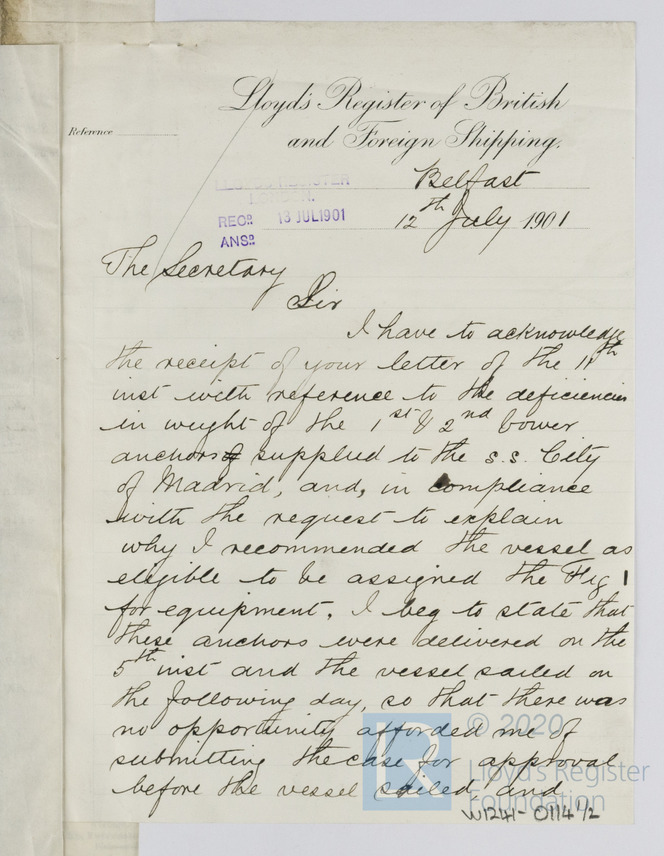 Lloyd's Register of British
and Foreign Shipping.
Reference
Belfast
12th July 1901
LLOYD'S REGISTER
LONDON.
RECD. 13 JUL 1901
ANSD.
The Secretary
Sir
I have to acknowledge
the receipt of your letter of the 11th
inst with reference to the deficiencies
in weight of the 1st & 2nd bower
anchors supplied to the s.s. City
of Madrid, and, in compliance
with the request to explain
why I recommended the vessel as
eligible to be assigned the Fig 1
for equipment. I beg to state that
these anchors were delivered on the
5th inst and the vessel sailed on
the following day, so that there was
no opportunity afforded me of
submitting the case for approval
before the vessel sailed, and
© 2020
Lloyd's Register
Foundation
W1241-0114 1/2